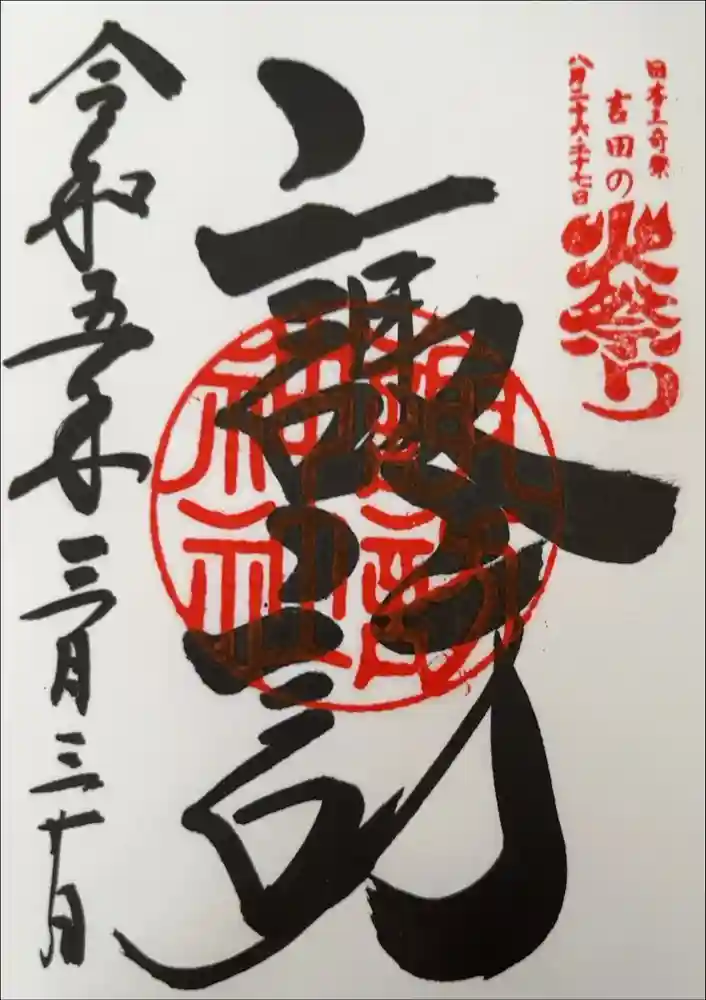 日本三奇祭
吉田の火祭り
八月二十六・二十七日
諏訪
諏訪
神社
令和五年三月三十日